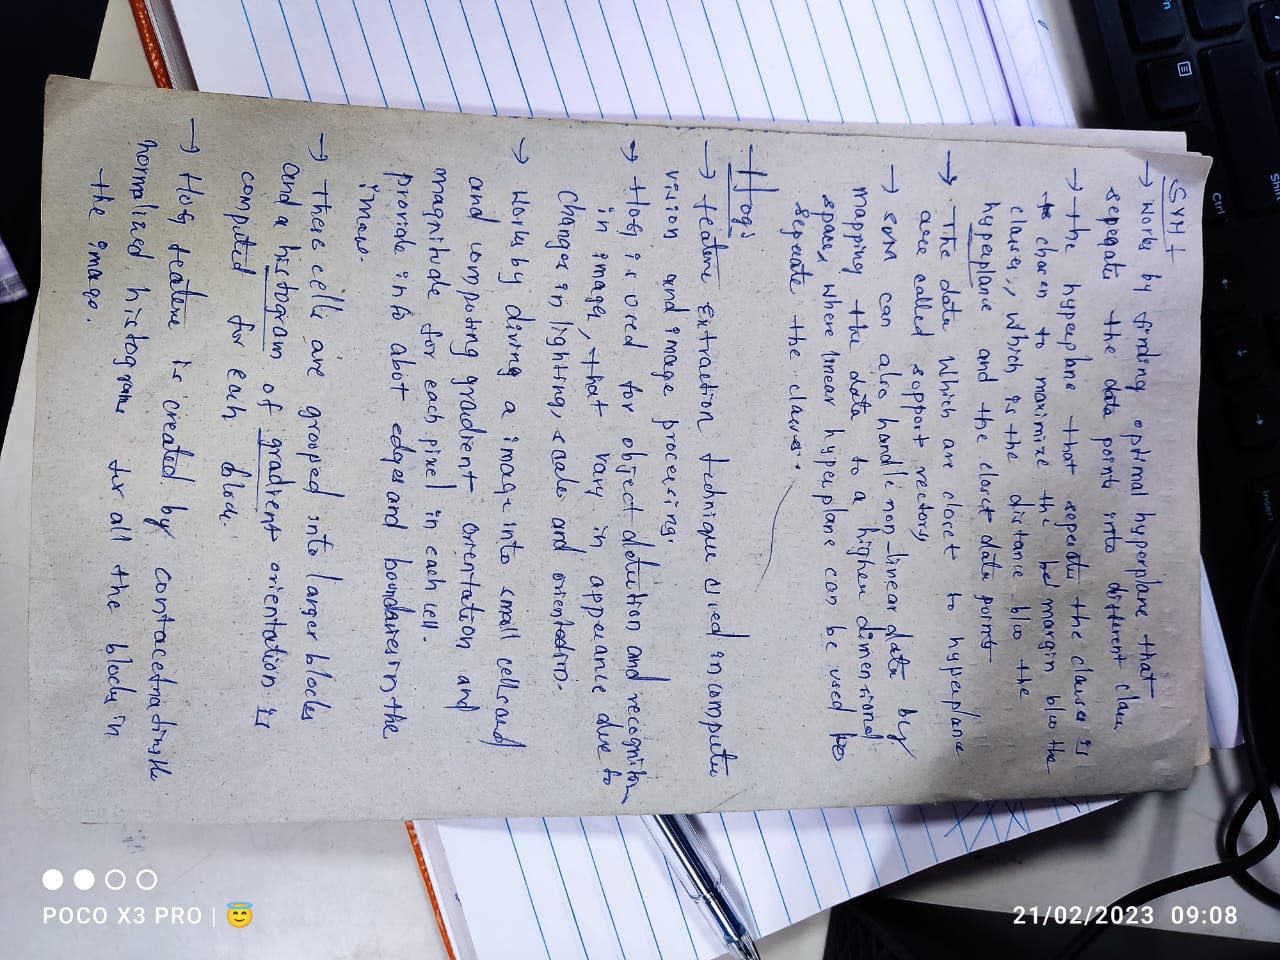 Shift
Ctrl
Insert
SVM
→ Works by finding optimal hyperplane that
sepegate the data points into different class
→ the hyperplane that seperate the classes is
chosen to maximize the bet margin b/w the
classes, which is the distance b/w the
hyperplane and the closet data points
→ The data which are closet to hyperplane
are called support vectors
→ SVM can also handle non-linear data by
mapping the data to a higher dimensional
space, where linear hyperplane can be used to
seperate the classes.
Hog:
→ feature Extraction technique used in computer
vision and image processing.
→ HOG is used for object detection and recognition
in images, that vary in apperance due to
changes in lighting, scale and orientation.
→ Works by diving a image into small cells and
and computing gradient orientation and
magnitude for each pixel in each cell.
provide info abot edges and boundaries in the
image.
→ These cells are grouped into larger blocks
and a histogram of gradient orientation is
computed for each block.
→ HOG feature is created by contacetnating the
normalized histograms for all the blocks in
the image.
21/02/2023 09:08
POCO X3 PRO |